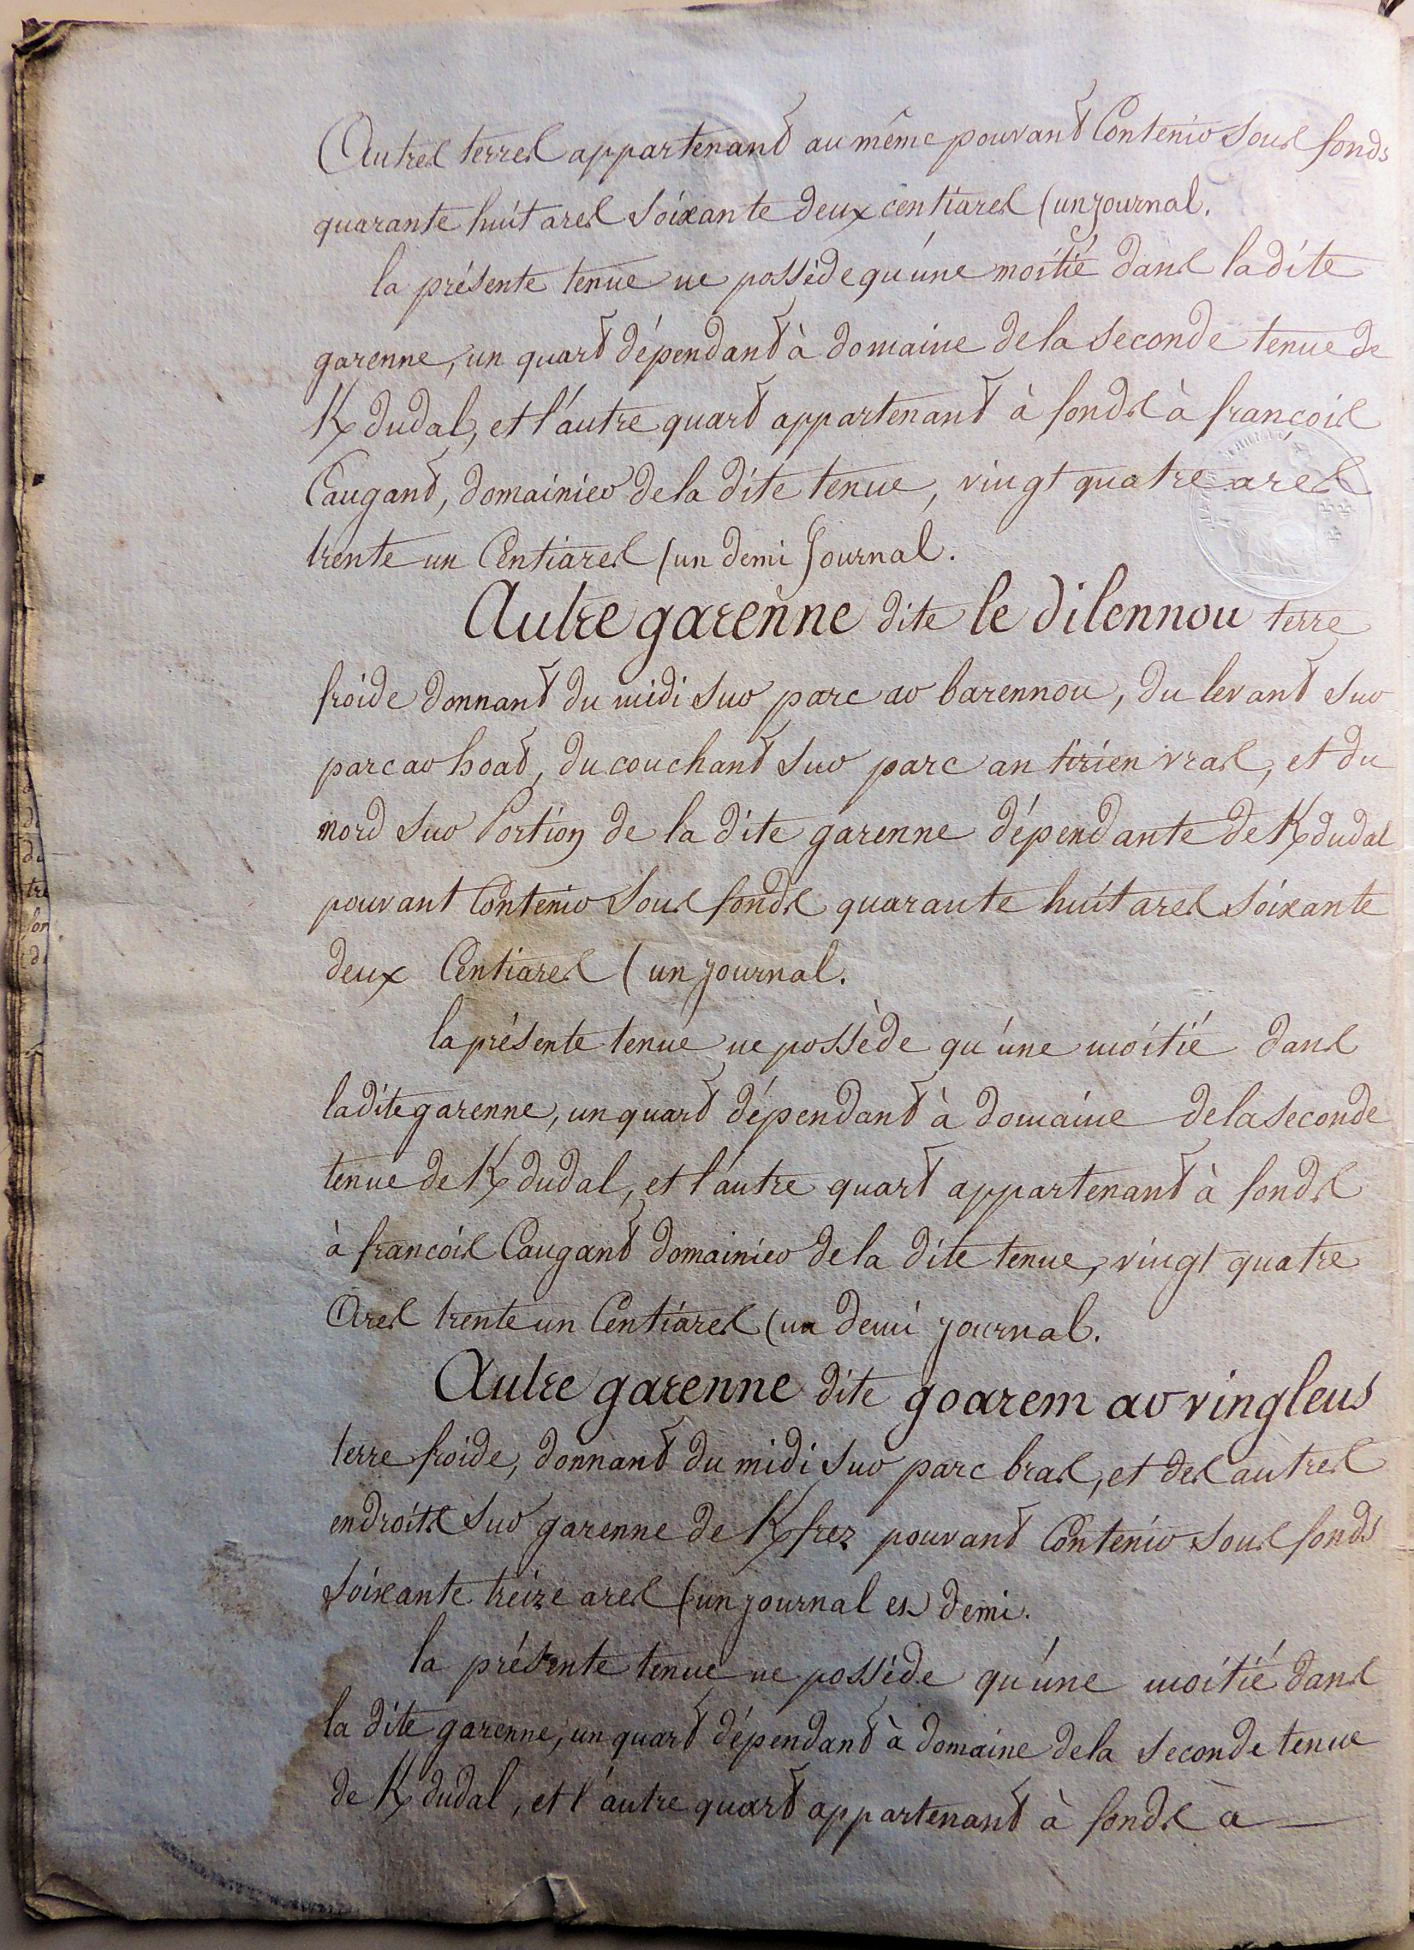 Autres terres appartenant au même pouvant Contenir sous fonds
quarante huit ares soixante deux centiares (un journal.
la présente tenue ne possède qu'une moitié dans la dite
garenne, un quart dépendant à domaine de la seconde tenue de
K/dudal, et l'autre quart appartenant à fonds à francois
Caugant, domainier de la dite tenue, vingt quatre ares
trente un Centiares (un demi Journal.
Autre garenne dite le dilennou terre
froide donnant du midi sur parc ar barennou, du levant sur
parc ar hoat, du couchant sur parc an tirien vras, et du
nord sur Portion de la dite garenne dépendante de K/dudal
pouvant Contenir sous fonds quarante huit ares soixante
deux Centiares (un journal.
la présente tenue ne possède qu'une moitié dans
la dite garenne, un quart dépendant à domaine de la seconde
tenue de K/dudal, et l'autre quart appartenant à fonds
à francois Caugant domainier de la dite tenue, vingt quatre
Ares trente un Centiares (un demi journal.
Autre garenne dite goarem ar vingleus
terre froide, donnant du midi sur parc bras, et des autres
endroits sur garenne de K/frez pouvant Contenir sous fonds
soixante treize ares (un journal et demi.
la présente tenue ne possède qu'une moitié dans
la dite garenne, un quart dépendant à domaine de la seconde tenue
de K/dudal, et l'autre quart appartenant à fonds à —